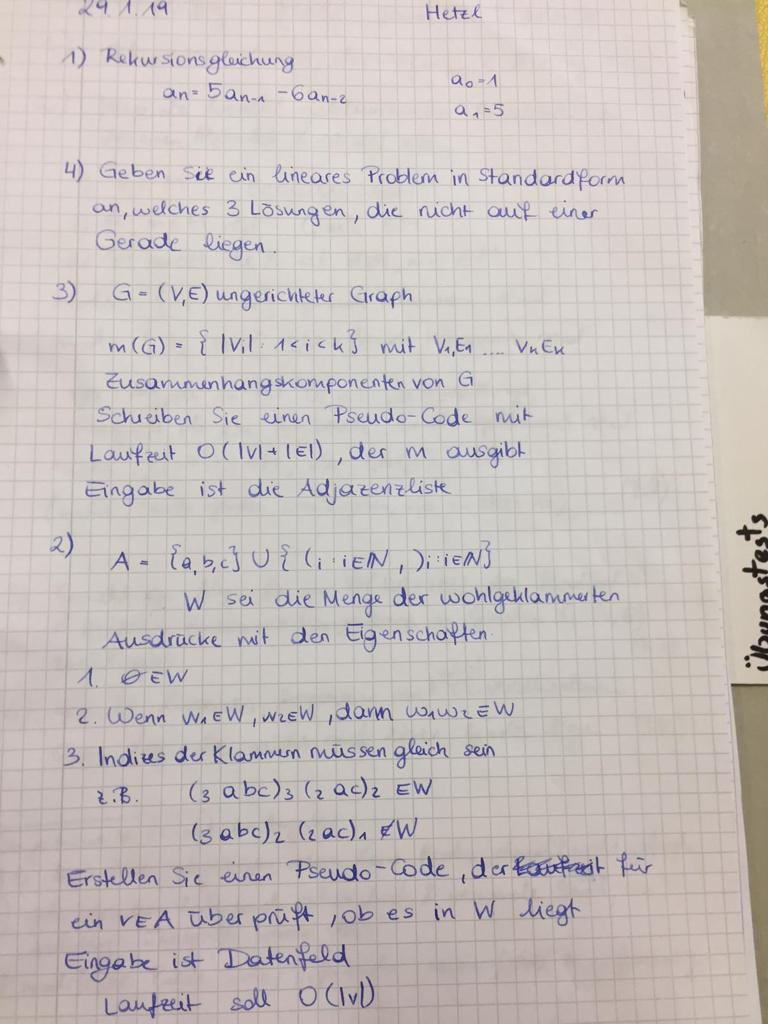 29.1.19 Hetzl
1) Rekursionsgleichung
an = 5an-1 - 6an-2
a0=1
a1=5
4) Geben Sie ein lineares Problem in Standardform
an, welches 3 Lösungen, die nicht auf einer
Gerade liegen.
3) G = (V,E) ungerichteter Graph
m(G) = { |Vi| : 1<i<k } mit V1,E1 .... VkEk
Zusammenhangskomponenten von G
Schreiben Sie einen Pseudo-Code mit
Laufzeit O(|V|+|E|), der m ausgibt
Eingabe ist die Adjazenzliste
2) A = {a,b,c} ∪ { (i : i∈ℕ , )i : i∈ℕ}
W sei die Menge der wohlgeklammerten
Ausdrücke mit den Eigenschaften.
1. ∅∈W
2. Wenn w1∈W, w2∈W, dann w1w2∈W
3. Indizes der Klammern müssen gleich sein
z.B. (3 abc)3 (2 ac)2 ∈W
(3 abc)2 (2 ac)1 ∉W
Erstellen Sie einen Pseudo-Code, der für
ein v∈A überprüft, ob es in W liegt
Eingabe ist Datenfeld
Laufzeit soll O(|v|)
Übungstests